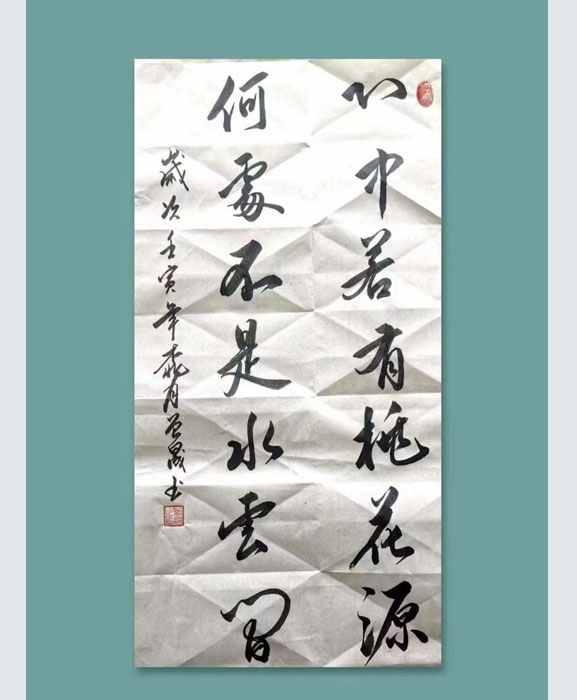 心中若有桃花源
何處不是水雲間
歲次壬寅年桃月
書